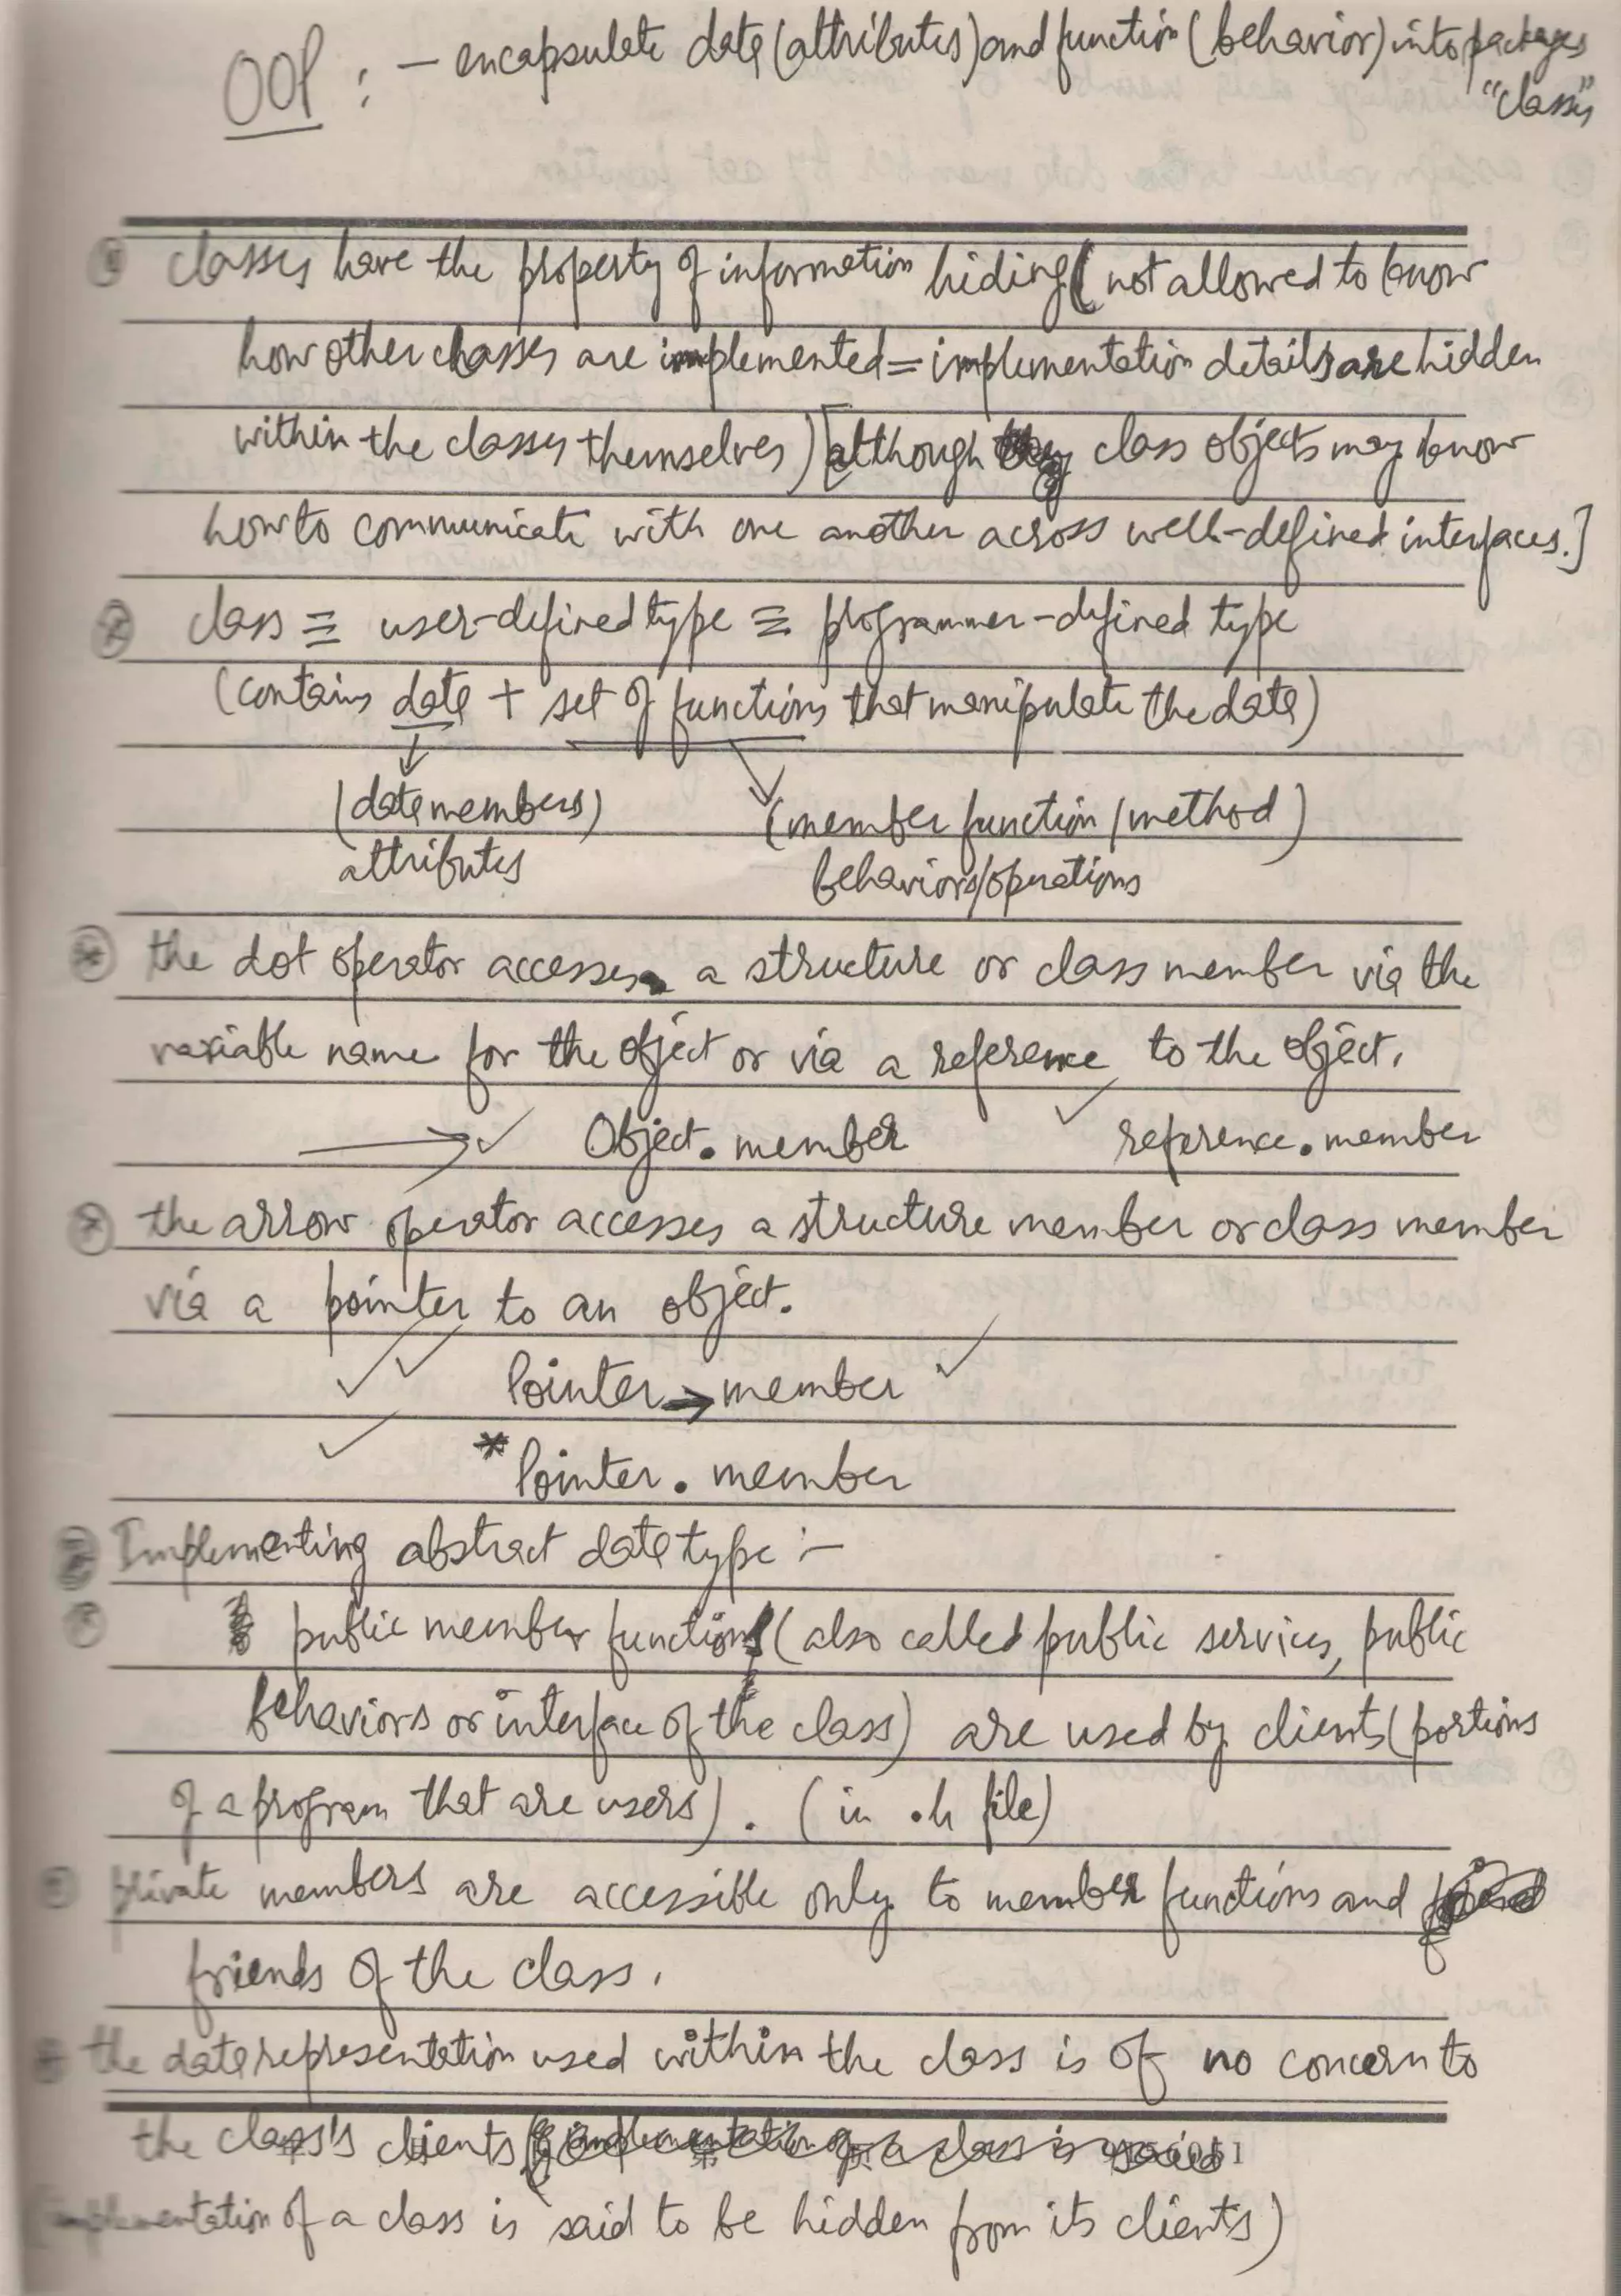 OOP : - encapsulate data (attributes) and function (behavior) into packages
"classes"
classes have the property of information hiding (not allowed to know
how other classes are implemented = implementation details are hidden
within the classes themselves) [although class objects may know
how to communicate with one another across well-defined interfaces.]
class ≡ user-defined type ≡ programmer-defined type
(contains data + set of functions that manipulate the data)
(data members) (member function / method)
attributes behaviors/operations
the dot operator accesses a structure or class member via the
variable name for the object or via a reference to the object.
→ ✓ Object.member ✓ reference.member
the arrow operator accesses a structure member or class member
via a pointer to an object.
✓ ✓ Pointer → member ✓
✓ *Pointer.member
Implementing abstract data type :-
public member functions (also called public services, public
behaviors or interface of the class) are used by clients (portions
of a program that are users). (in .h file)
private members are accessible only to member functions and
friends of the class.
the data representation used within the class is of no concern to
the class's clients
(implementation of a class is said to be hidden from its clients)